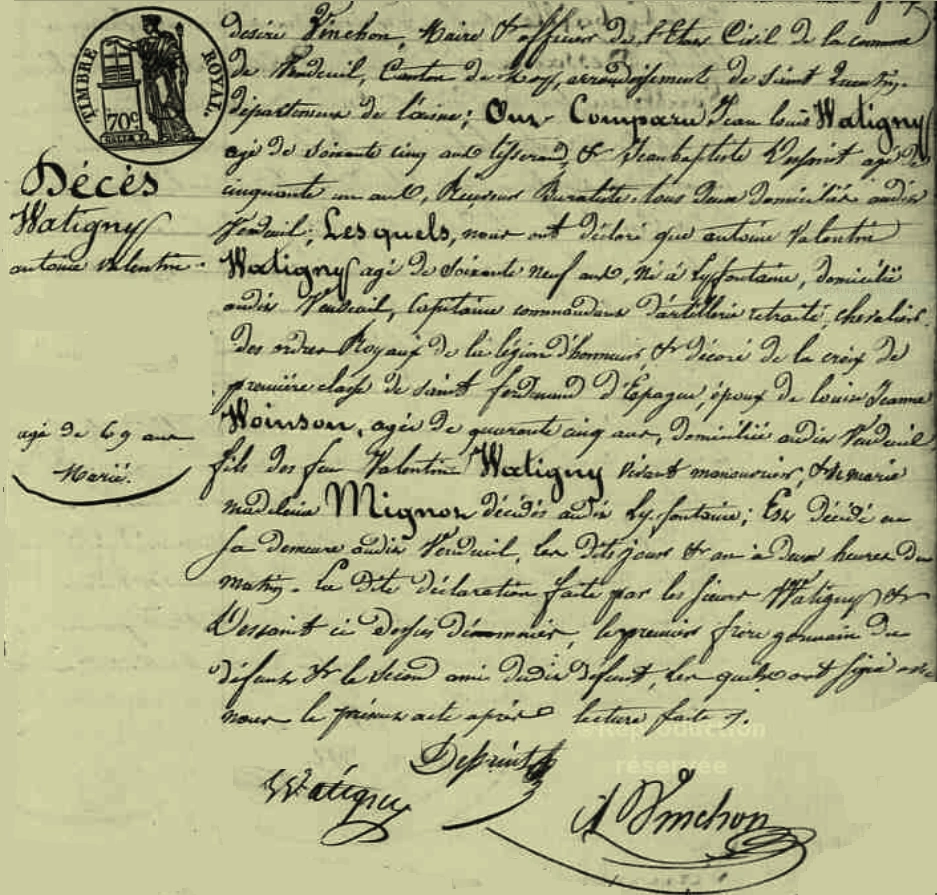 TIMBRE ROYAL.
70c
Décès
Watigny
antoine valentin.
agé de 69 ans
Marié.
desiré Vinchon, Maire & officier de l'Etat Civil de la commune
de Vendeuil, Canton de Moy, arrondissement de saint Quentin,
département de l'aisne; Ont Comparu Jean louis Watigny
agé de soixante cinq ans tisserand, & Jean baptiste agé de
cinquante un ans, tous deux domiciliés audit
Vendeuil; Lesquels, nous ont déclaré que antoine Valentin
Watigny agé de soixante neuf ans, né à Lyfontaine, domicilié
audit Vendeuil, Capitaine commandant d'artillerie retraité, chevalier
des ordres Royaux de la légion d'honneur, & décoré de la croix de
première classe de saint ferdinand d'Espagne, époux de louise Jeanne
Woinson, agée de quarante cinq ans, domiciliée audit Vendeuil
fils des feu Valentin Watigny vivant manouvrier, & de marie
madeleine Mignon décédés audit Ly-fontaine; Est Décédé en
sa demeure audit Vendeuil, les dits jour & an à deux heures du
matin. La dite déclaration faite par les sieurs Watigny &
ci dessus dénommés, le premier frère germain du
défunt & le second ami dudit défunt, les quels ont signé avec
nous le présent acte après lecture faite.
Watigny
D Vinchon
©Reproduction
réservée